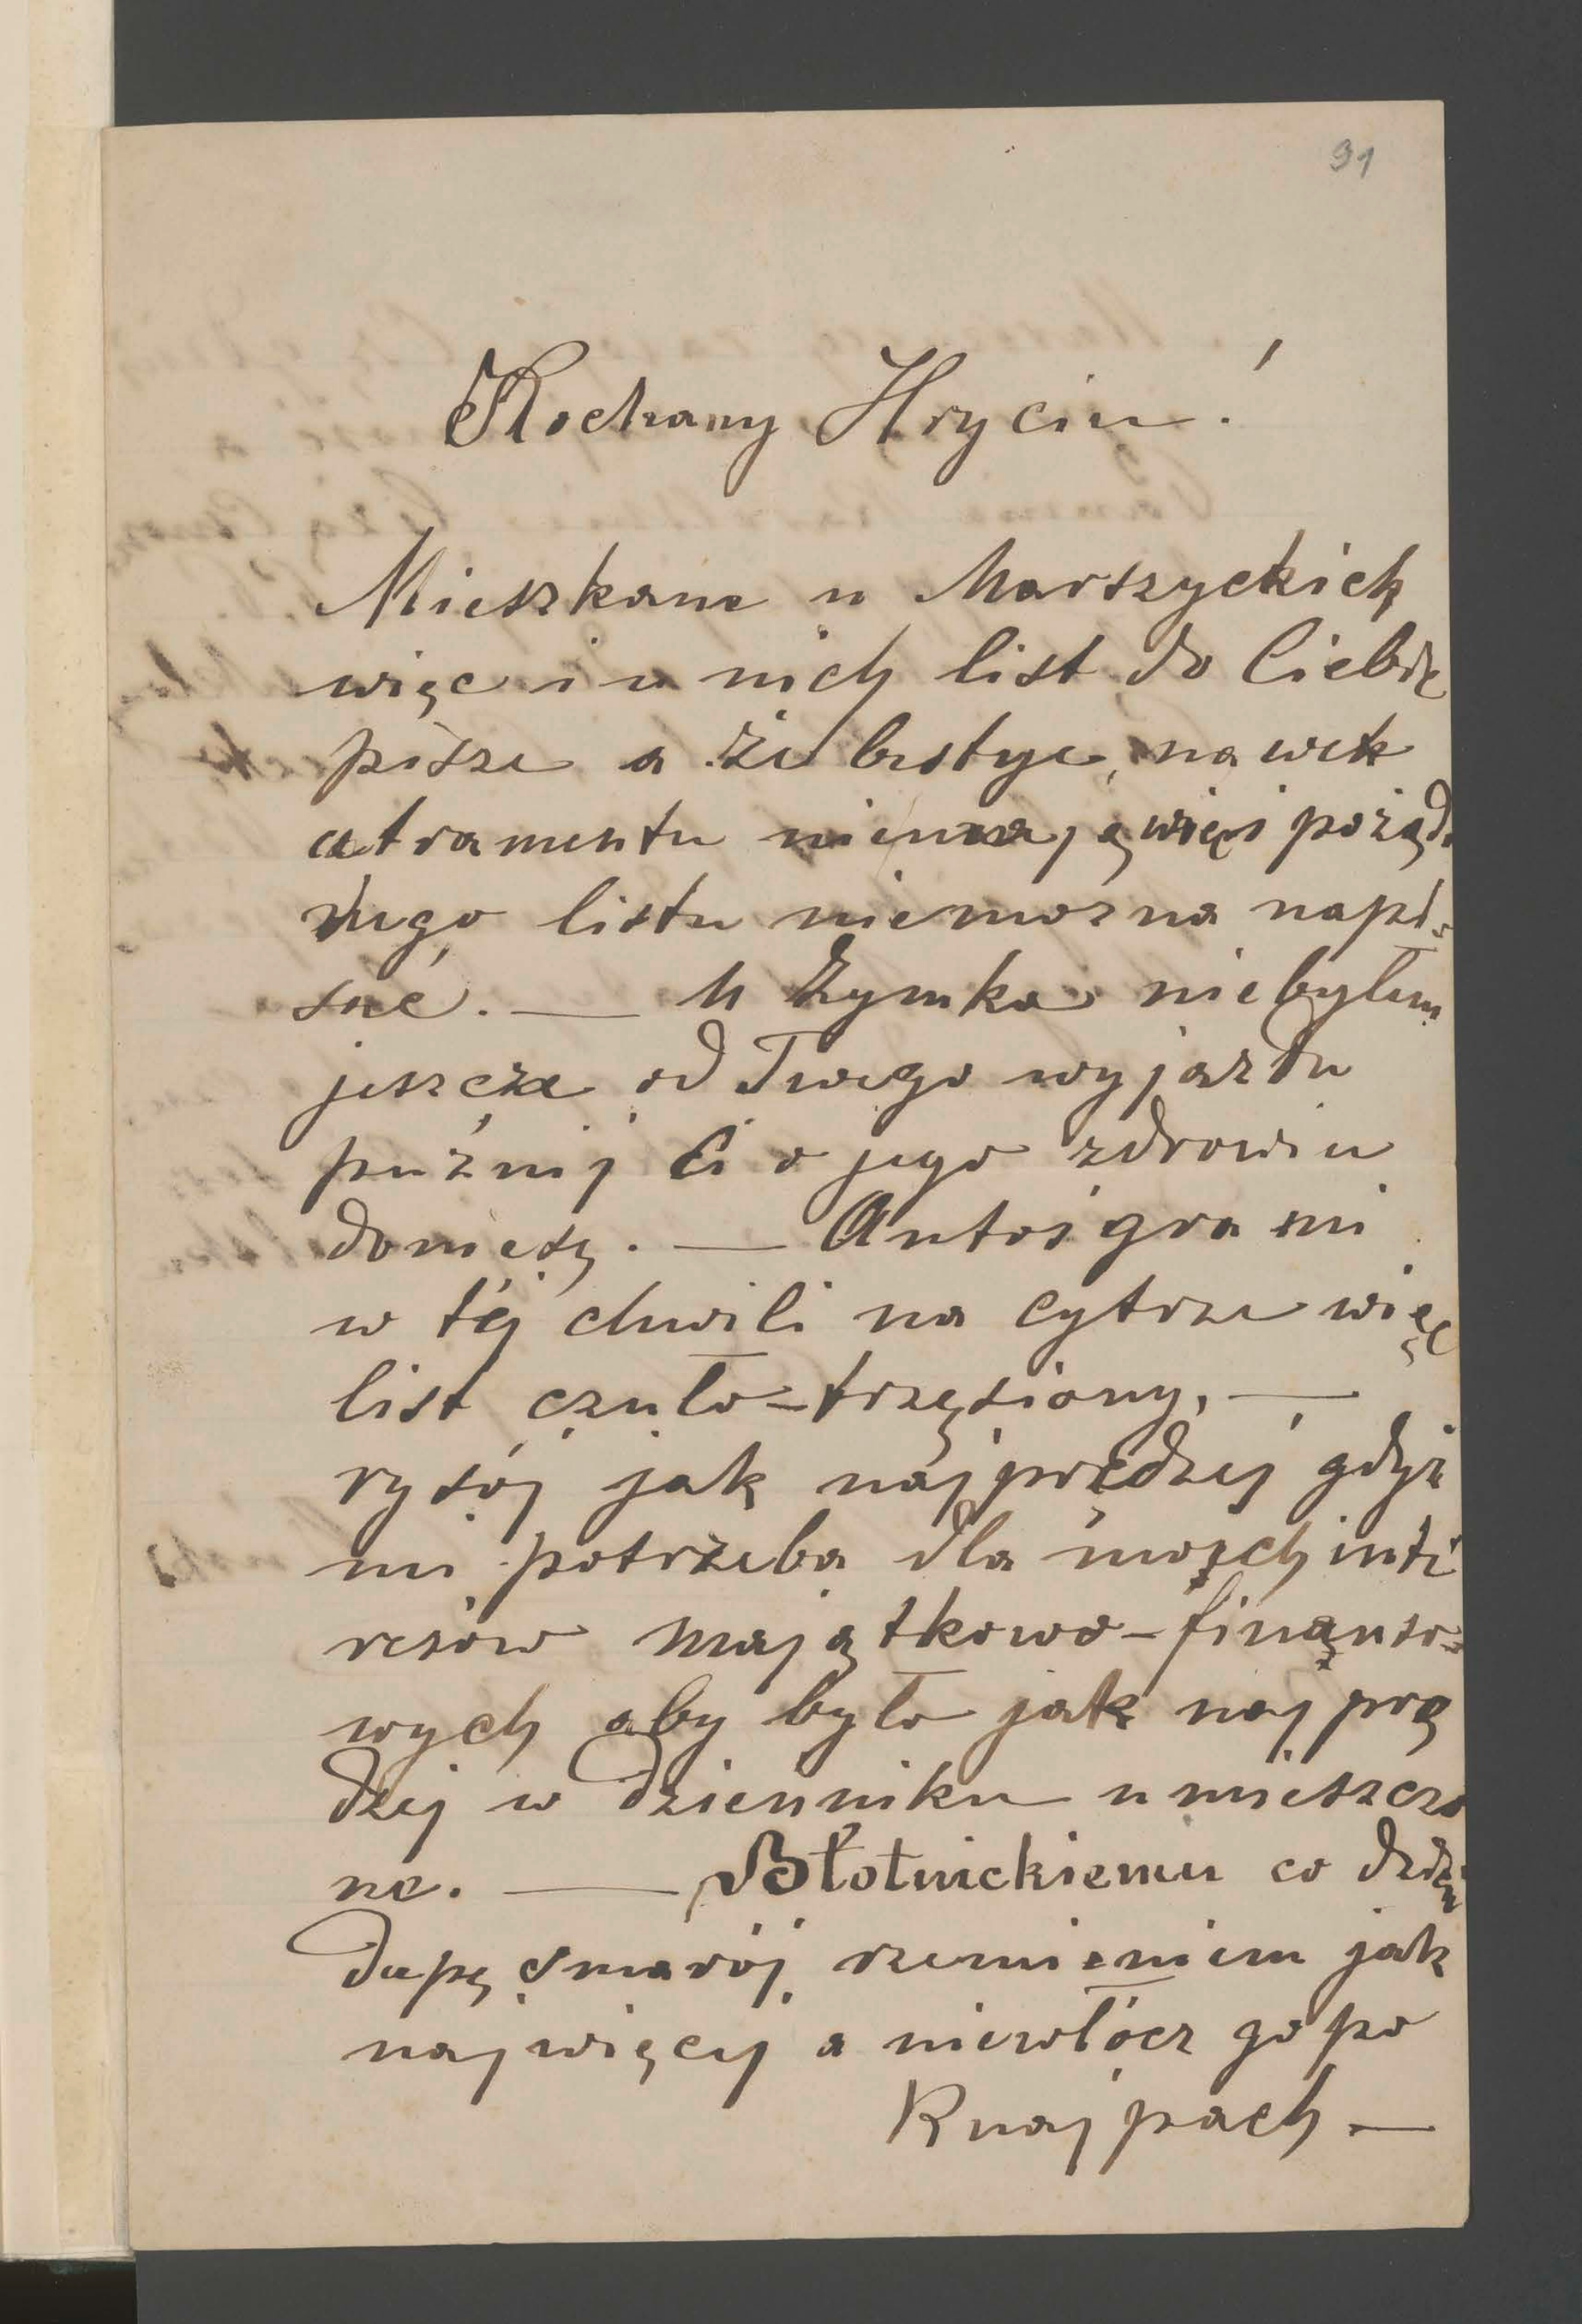 91
Kochany Hryciu!
Mieszkam u Marszyckich
więc i u nich list do Ciebie
pisze a że bestyje, nawet
atramentu niemają więc i pożąd
nego listu niemożna napi-
sać. — U Zymka niebyłem
jeszcze od Twego wyjazdu
puźnij Ci o jego zdrowiu
doniesę. — Antoś gra mi
w téj chwili na cytrze więc
list czuło-trzęsiony, —
rysój jak najprędzej gdyż
mi potrzeba dla mojch inte
resów majątkowo-finanso-
wych aby było jak najprę
dzej w dzienniku umieszczo
ne. — Błotnickiemu co dzień
dupę smarój rzemieniem jak
najwięcej a niewłócz go po
Knajpach —